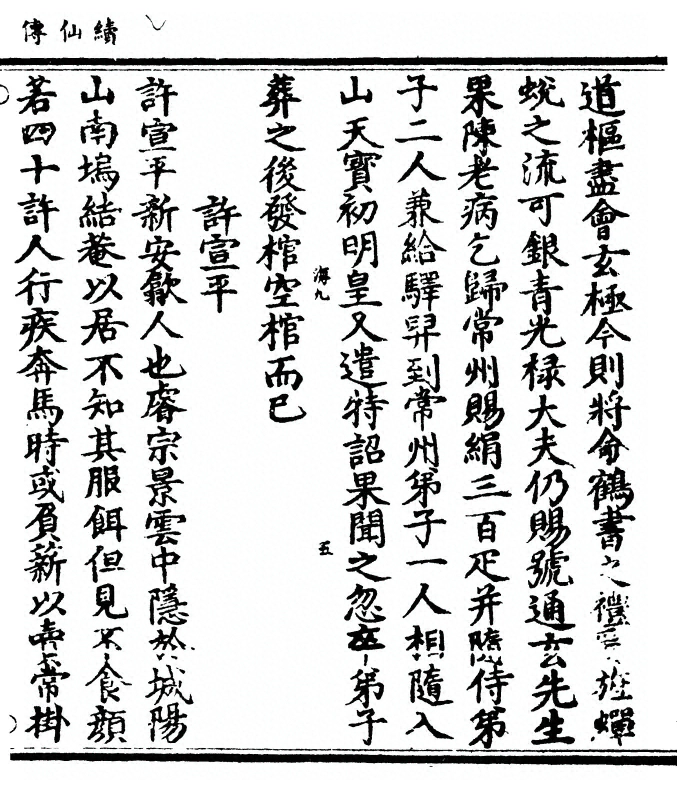 續仙傳
道樞盡會玄極今則將命鶴書之禮旌蟬
蛻之流可銀青光祿大夫仍賜號通玄先生
果陳老病乞歸常州賜絹三百疋并隨侍弟
子二人兼給驛舁到常州弟子一人相隨入
山天寶初明皇又遣特詔果聞之忽卒弟子
海九
五
葬之後發棺空棺而已
許宣平
許宣平新安歙人也睿宗景雲中隱於城陽
山南塢結菴以居不知其服餌但見不食顏
若四十許人行疾奔馬時或負薪以賣常掛